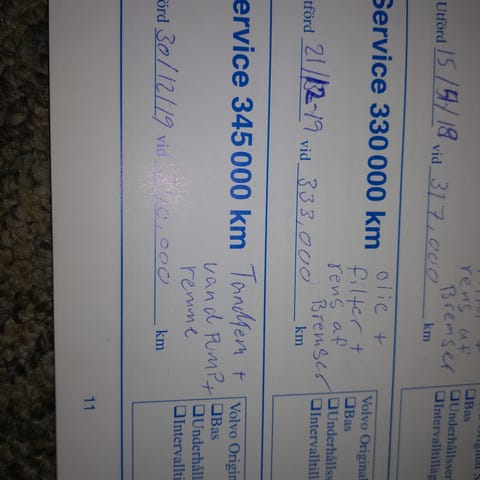 rens af
Bremser
Utförd 15/4/18 vid 317,000 km
❑Bas
❑Underhållsser
❑Intervalltilläg
Service 330 000 km
olie +
filter +
rens af
Bremser
tförd 21/12-19 vid 333,000 km
Volvo Original
❑Bas
❑Underhålls
❑Intervalltill
ervice 345 000 km
Tandrem +
vandpump +
remme
förd 30/12/19 vid km
Volvo Origin
❑Bas
❑Underhålls
❑Intervallti
11